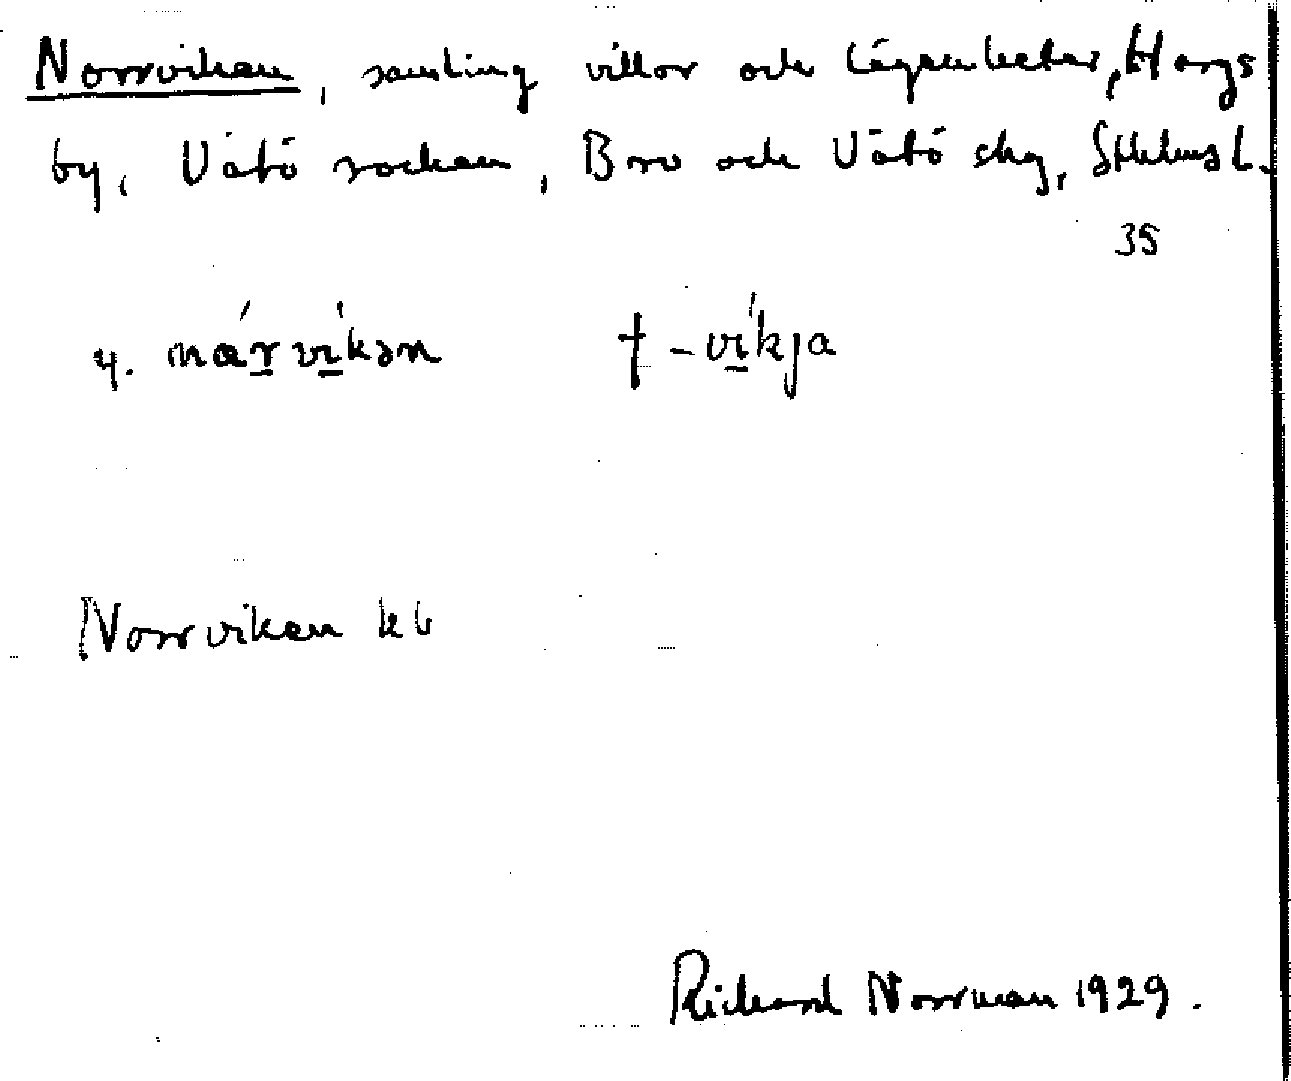 Norrviken, samling villor och lägenheter, Hargs
by, Vätö socken, Bro och Vätö skg, Sthlms l.
35
4. nárvíkən † -víkja
Norrviken kb
Richard Norrman 1929.